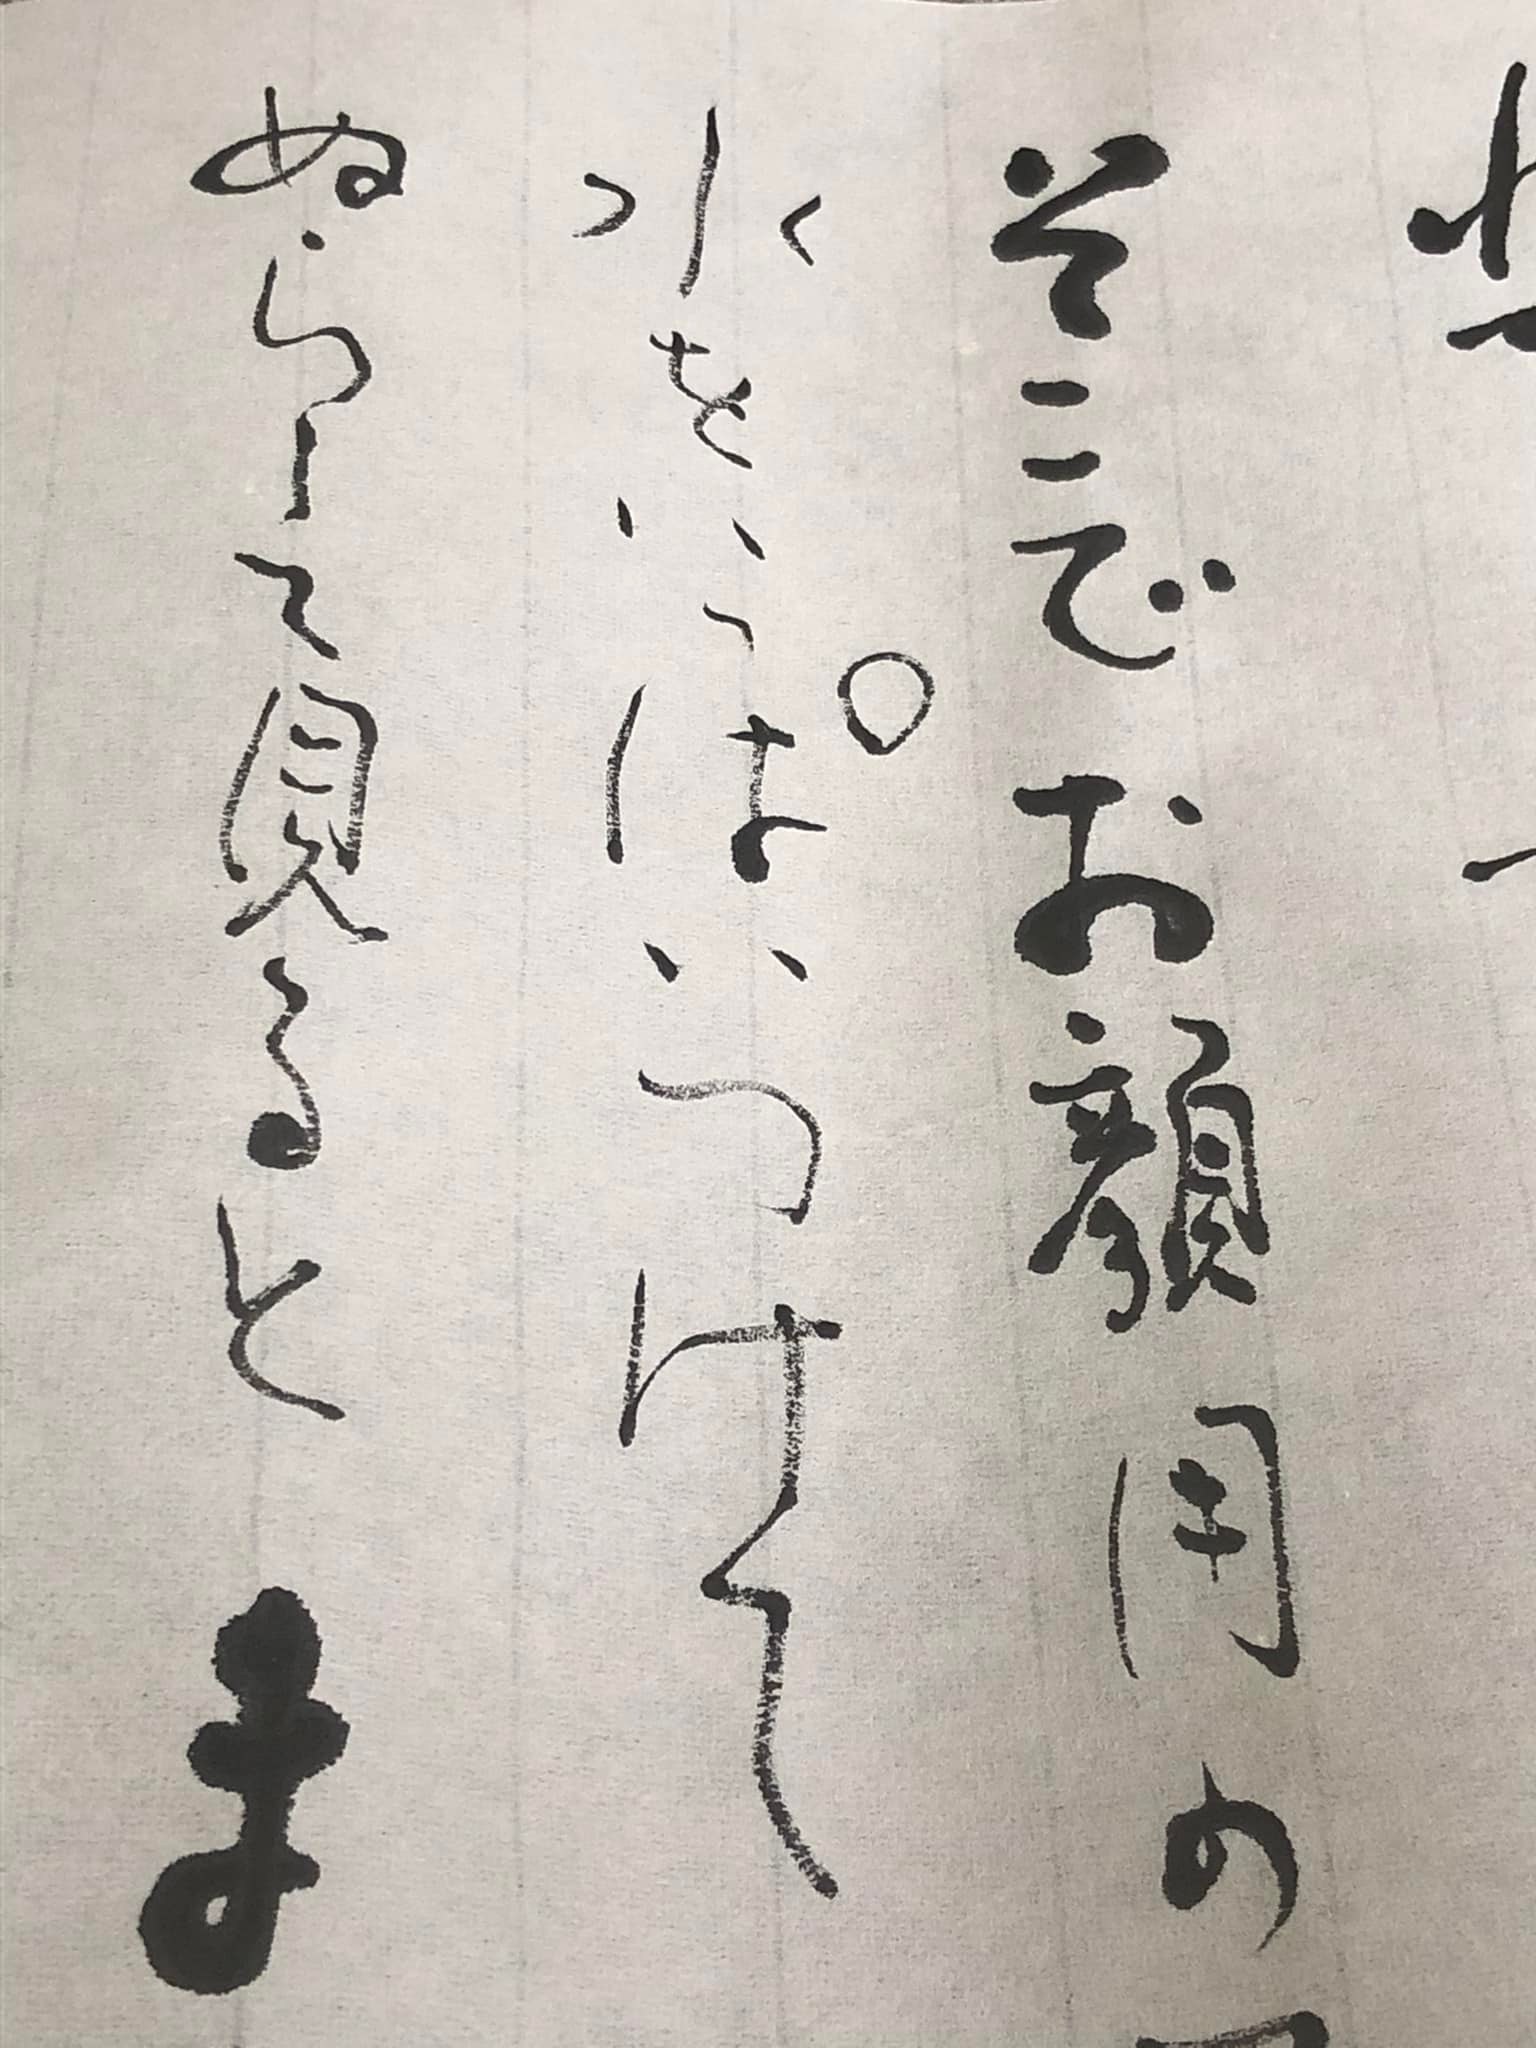 そこでお顔用の
水をいっぱいつけて
ぬらして見ると
ま